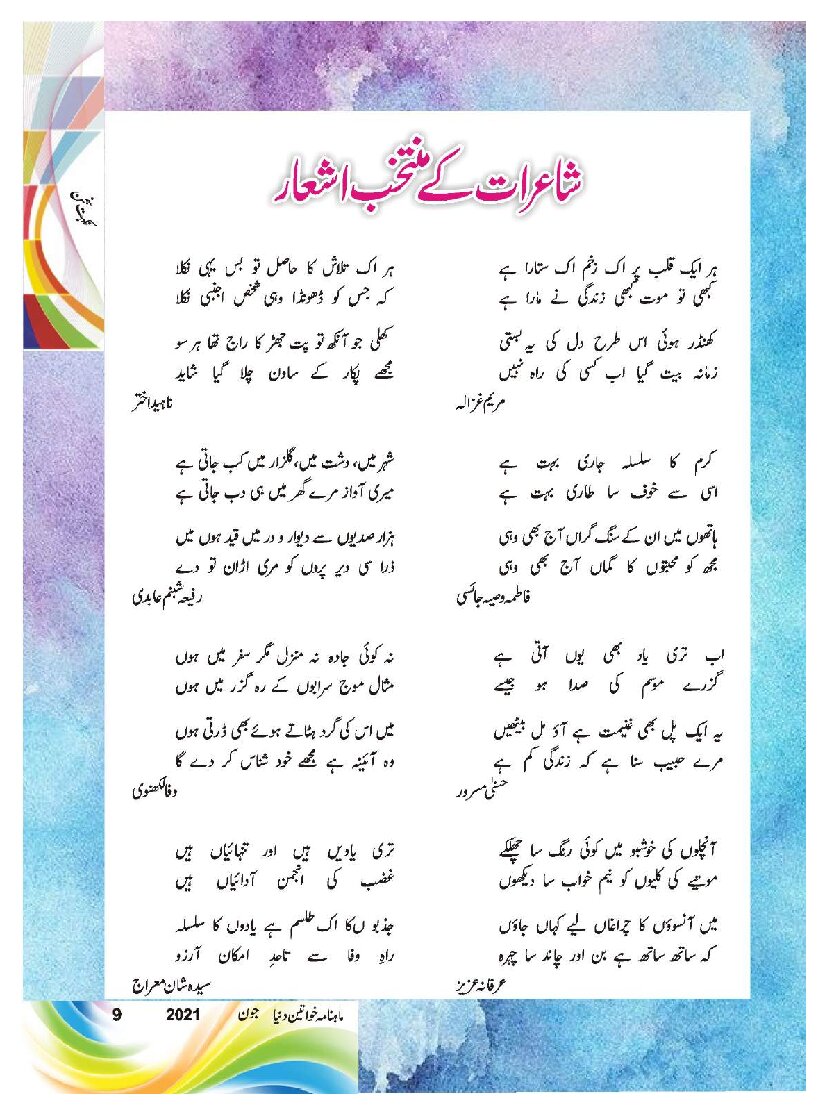 نکہت سخن
شاعرات کے منتخب اشعار
ہر ایک قلب پر اک زخم اک ستارا ہے
کبھی تو موت کبھی زندگی نے مارا ہے
کھنڈر ہوئی اس طرح دل کی یہ بستی
زمانہ بیت گیا اب کسی کی راہ نہیں
مریم غزالہ
کرم کا سلسلہ جاری بہت ہے
اسی سے خوف سا طاری بہت ہے
ہاتھوں میں ان کے سنگ گراں آج بھی وہی
مجھ کو محبتوں کا گماں آج بھی وہی
فاطمہ وصیہ جائسی
اب تری یاد بھی یوں آتی ہے
گزرے موسم کی صدا ہو جیسے
یہ ایک پل بھی غنیمت ہے آؤ مل بیٹھیں
مرے حبیب سنا ہے کہ زندگی کم ہے
حسنیٰ مسرور
آنچلوں کی خوشبو میں کوئی رنگ سا چھلکے
موتیے کی کلیوں کو نیم خواب سا دیکھوں
میں آنسوؤں کا چراغاں لیے کہاں جاؤں
کہ ساتھ ساتھ ہے بن اور چاند سا چہرہ
عرفانہ عزیز
ہر اک تلاش کا حاصل تو بس یہی نکلا
کہ جس کو ڈھونڈا وہی شخص اجنبی نکلا
کھلی جو آنکھ تو پت جھڑ کا راج تھا ہر سو
مجھے پکار کے ساون چلا گیا شاید
ناہید اختر
شہر میں، دشت میں، گلزار میں کب جاتی ہے
میری آواز مرے گھر میں ہی دب جاتی ہے
ہزار صدیوں سے دیوار و در میں قید ہوں میں
ذرا سی دیر پروں کو مری اڑان تو دے
رفیعہ شبنم عابدی
نہ کوئی جادہ نہ منزل مگر سفر میں ہوں
مثال موج سرابوں کے رہ گزر میں ہوں
میں اس کی گرد ہٹاتے ہوئے بھی ڈرتی ہوں
وہ آئینہ ہے مجھے خود شناس کر دے گا
وفا لکھنوی
تری یادیں ہیں اور تنہائیاں ہیں
غضب کی انجمن آرائیاں ہیں
جذبوں کا اک طلسم ہے یادوں کا سلسلہ
راہِ وفا سے تاحدِ امکان آرزو
سیدہ شان معراج
ماہنامہ خواتین دنیا جون 2021 9